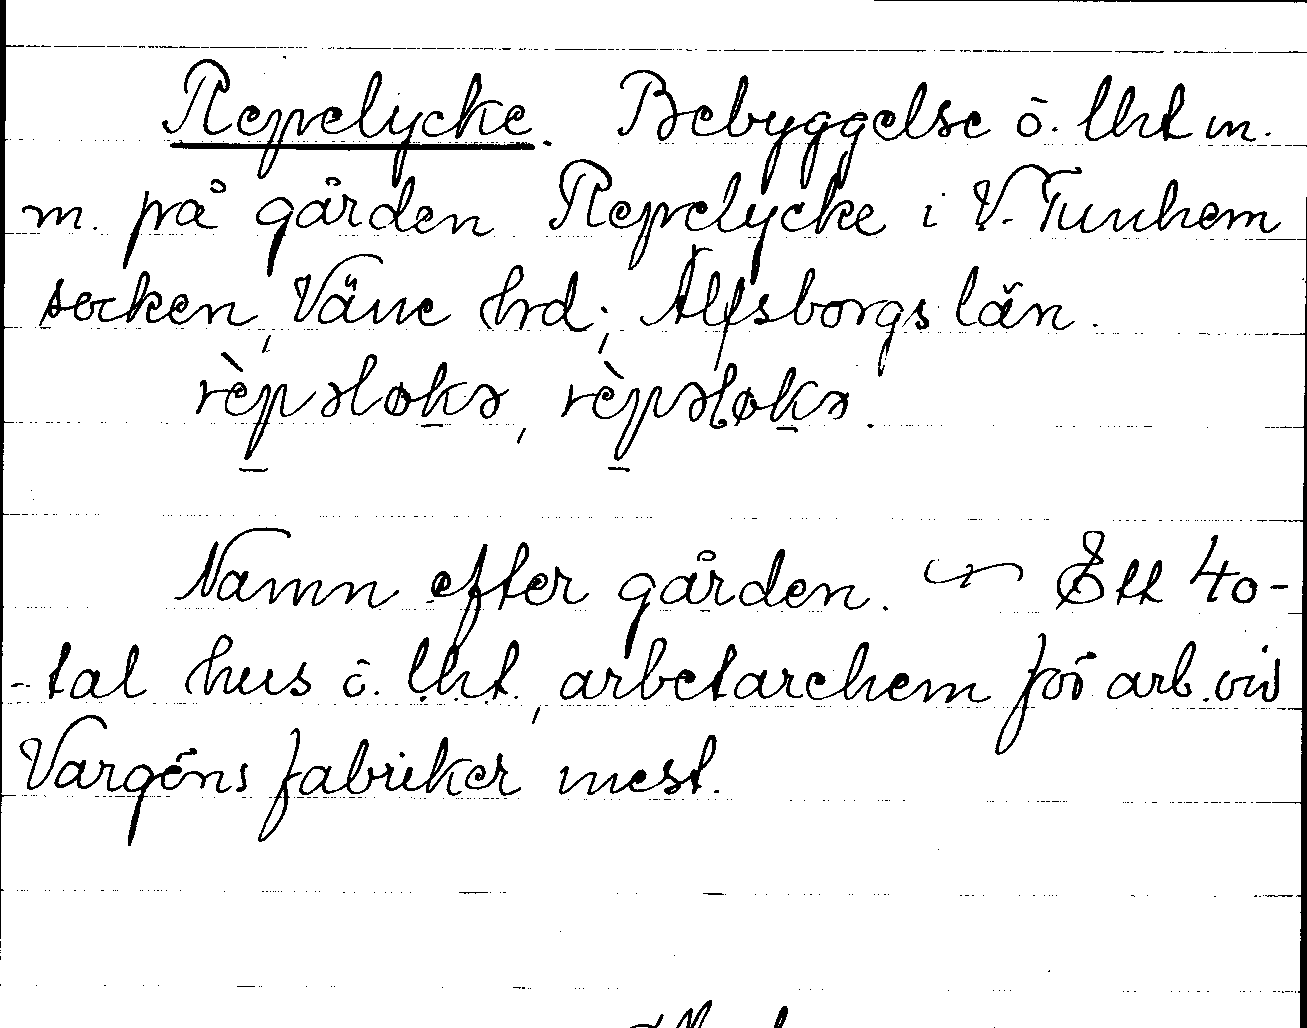 Repelycke. Bebyggelse o. lht m.
m. på gården Repelycke i V. Tunhem
socken, Väne hrd; Älfsborgs län.
rèpəløkə, rèpəløkə.
Namn efter gården. ~ Ett 40-
-tal hus o. lht., arbetarehem för arb. vid
Vargöns fabriker mest.